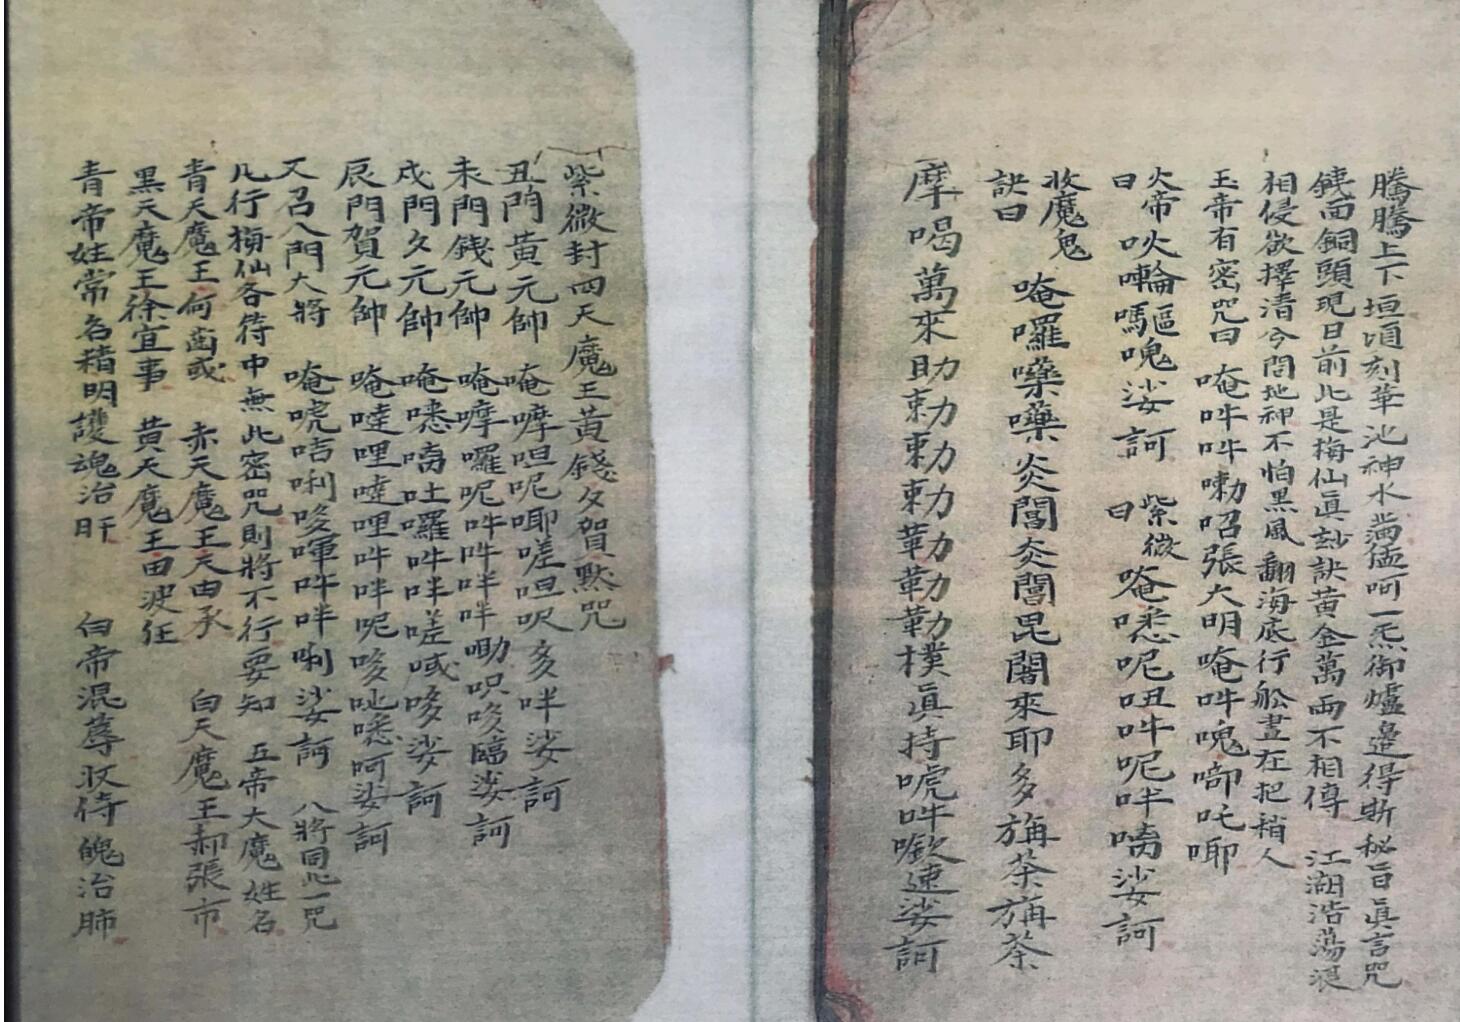 騰騰上下垣頃刻華池神水滿盔呵一炁御爐邊得斯秘旨眞言咒
鉄面銅頭現目前此是梅仙眞玅訣黃金萬両不相傳 江湖浩蕩浪
相侵欲擇清今問地神不怕黑風翻海底行船晝在把稍人
玉帝有密咒曰 唵吽吽嘞㕿張大明唵吽嘰啣吒唧
火帝曰 吙囵嗎驅嘰娑訶 紫微曰 唵㗭呢吜吽呢吽嘀娑訶
收魔鬼訣曰 唵囉㘓㘓炎閻炎閻毘闍來耶多旃荼旃荼
摩喝萬來助勅勅勅勒勒勒樸眞持唬吽噷速娑訶
紫微封四天魔王黃錢夕賀黙咒
丑門黃元帥 唵嚤呾呢唧嗟呾呎多吽娑訶
未門錢元帥 唵嚤囉呢吽吽吽吽嘞呎哆臨娑訶
戍門夕元帥 唵㗭嘀吐囉吽吽嗟哦哆娑訶
辰門賀元帥 唵噠哩噠哩吽吽呢哆吣㗭呵娑訶
又召八門大將 唵唬咭唎哆㖔吽吽唎娑訶 八將同此一咒
凡行梅仙各符中無此密咒則將不行要知 五帝大魔姓名
青天魔王何齒或 赤天魔王天由承 白天魔王郝張市
黒天魔王徐宜事 黃天魔王由波任
青帝姓常名精明護魂治肝 白帝混蓐收侍魄治肺